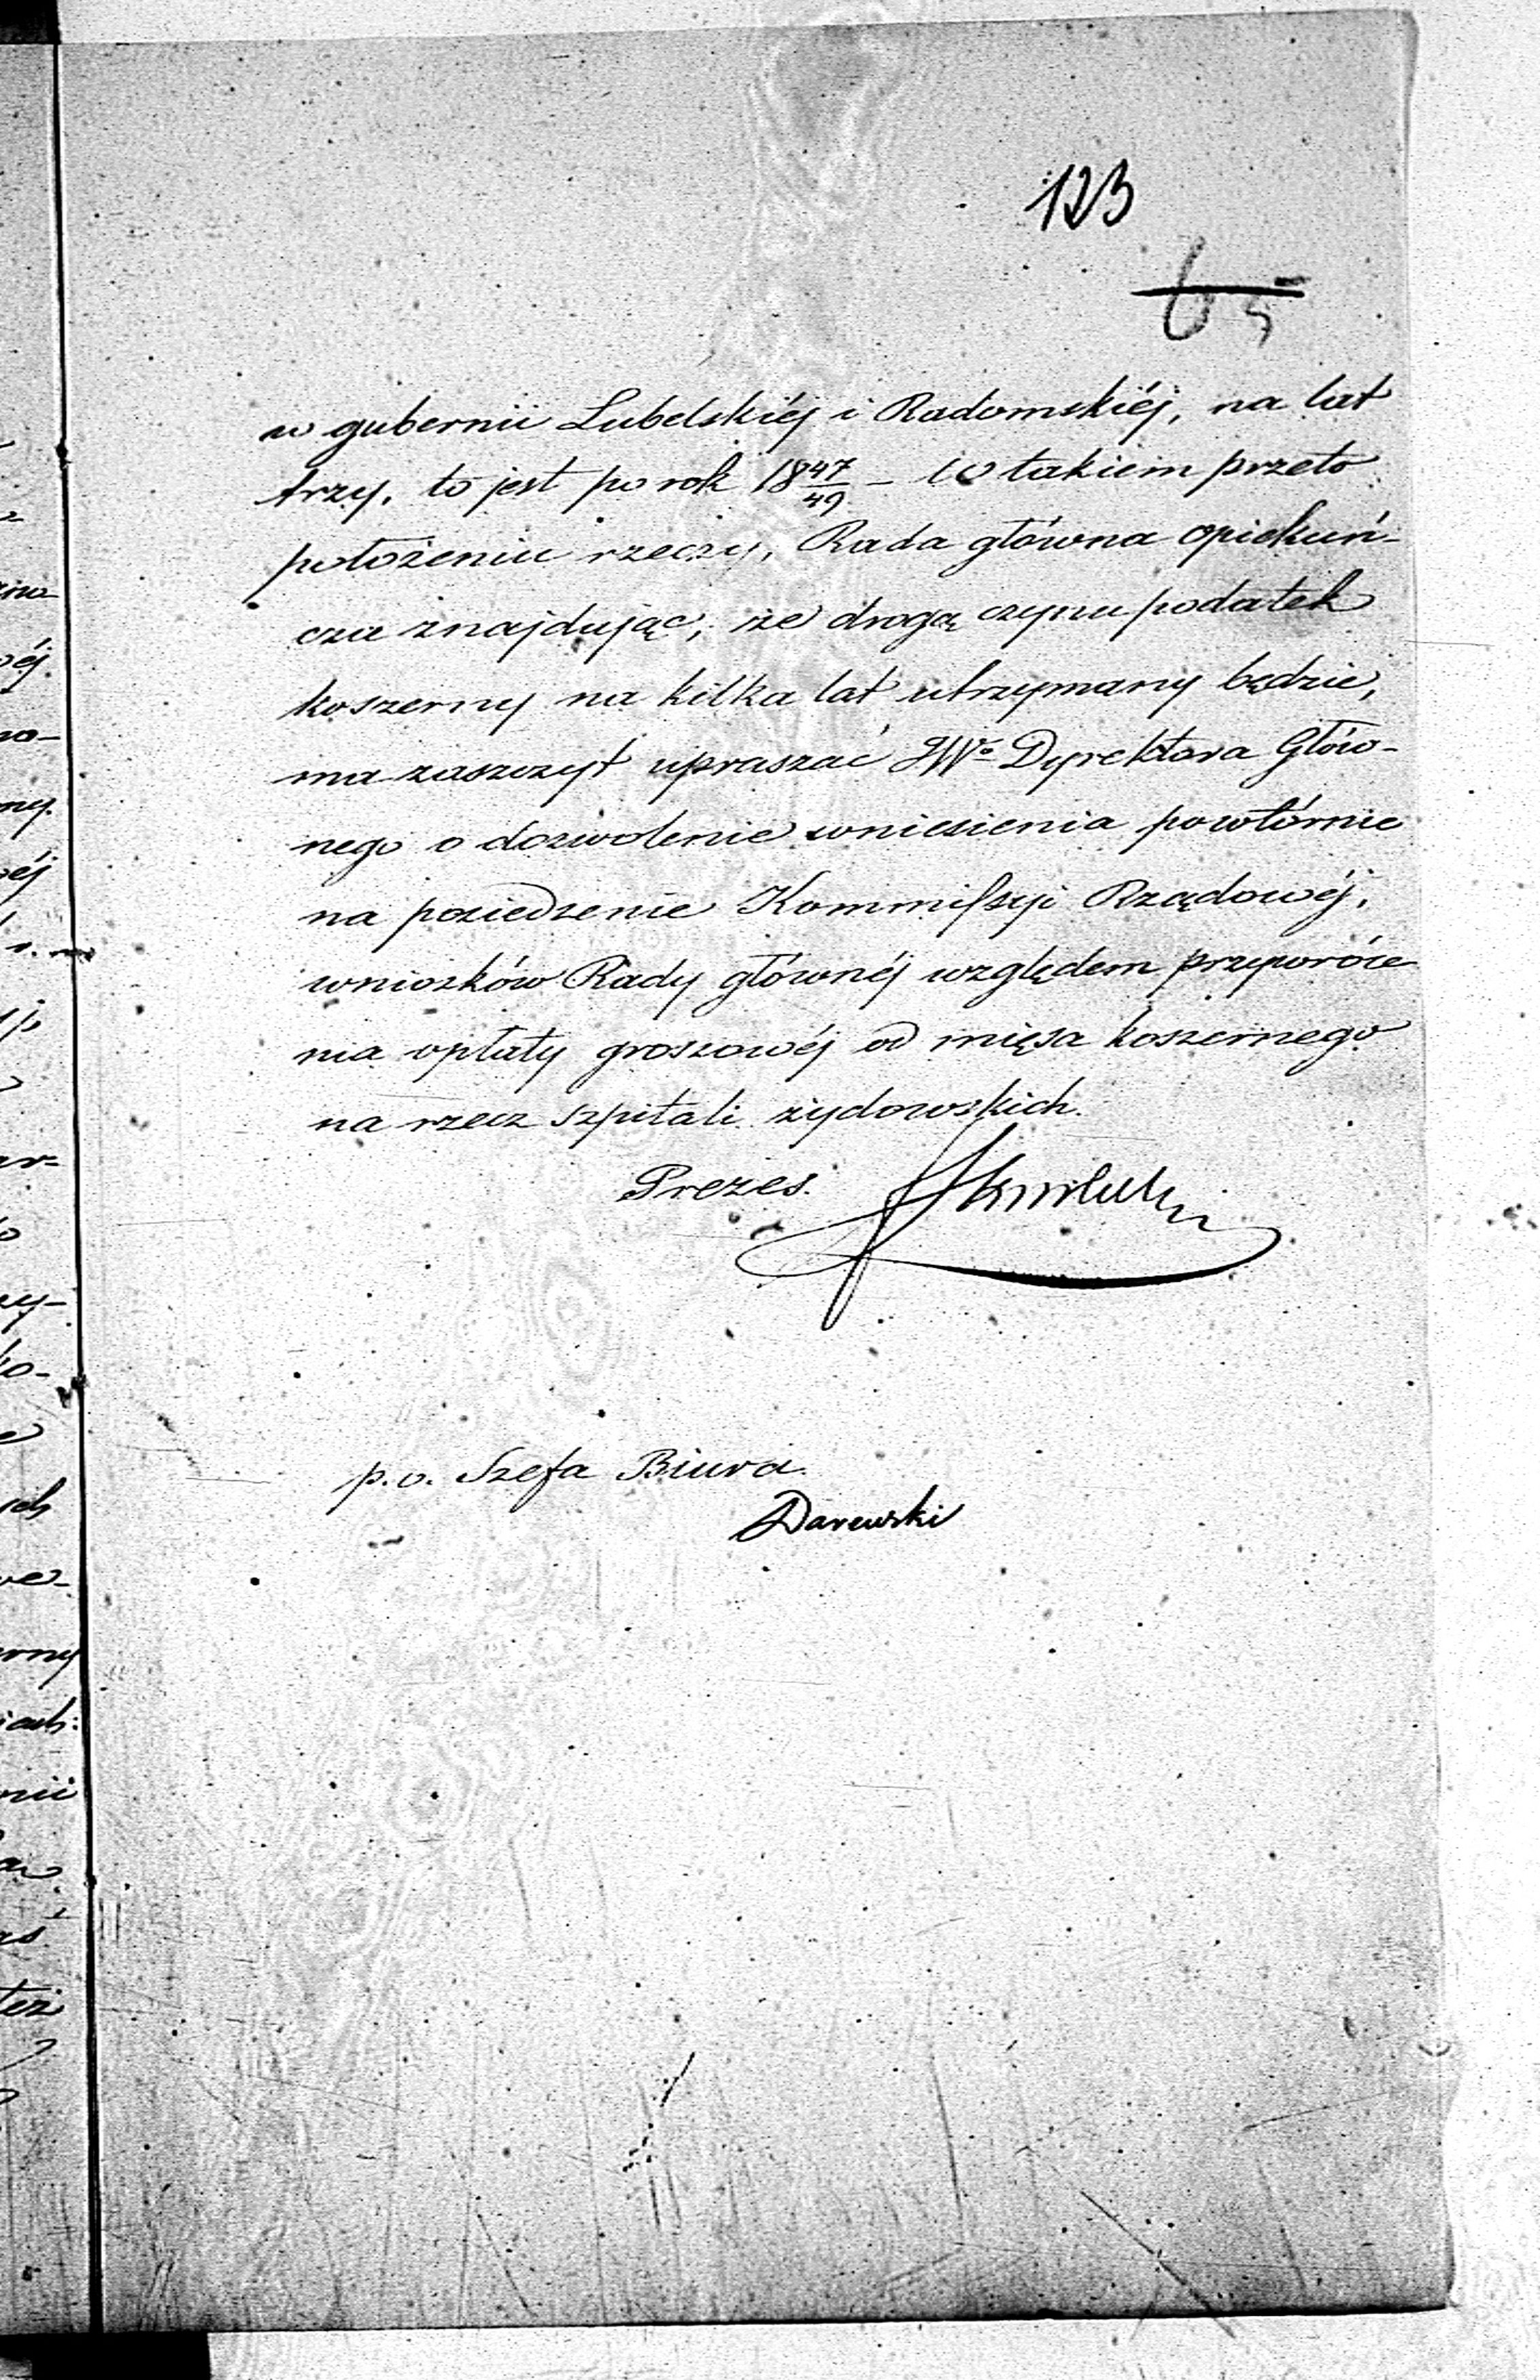 123
65
w gubernii Lubelskiéj i Radomskiéj, na lat
trzy, to jest po rok 1847/49 – W takiem przeto
położeniu rzeczy, Rada główna opiekuń-
cza znajdując, że drogą czynu podatek
koszerny na kilka lat utrzymany będzie,
ma zaszczyt upraszać JWo Dyrektora Głów-
nego o dozwolenie wniesienia powtórnie
na posiedzenie Kommissyi Rządowéj,
wniosków Rady głównéj względem przywróce
nia opłaty groszowéj od mięsa koszernego
na rzecz szpitali żydowskich.
Prezes.
p.o. Szefa Biura.
Darewski